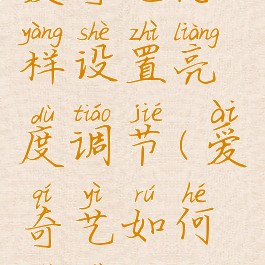 yàng shè zhì liàng
样设置亮
dù tiáo jié ài
度调节(爱
qí yì rú hé
奇艺如何